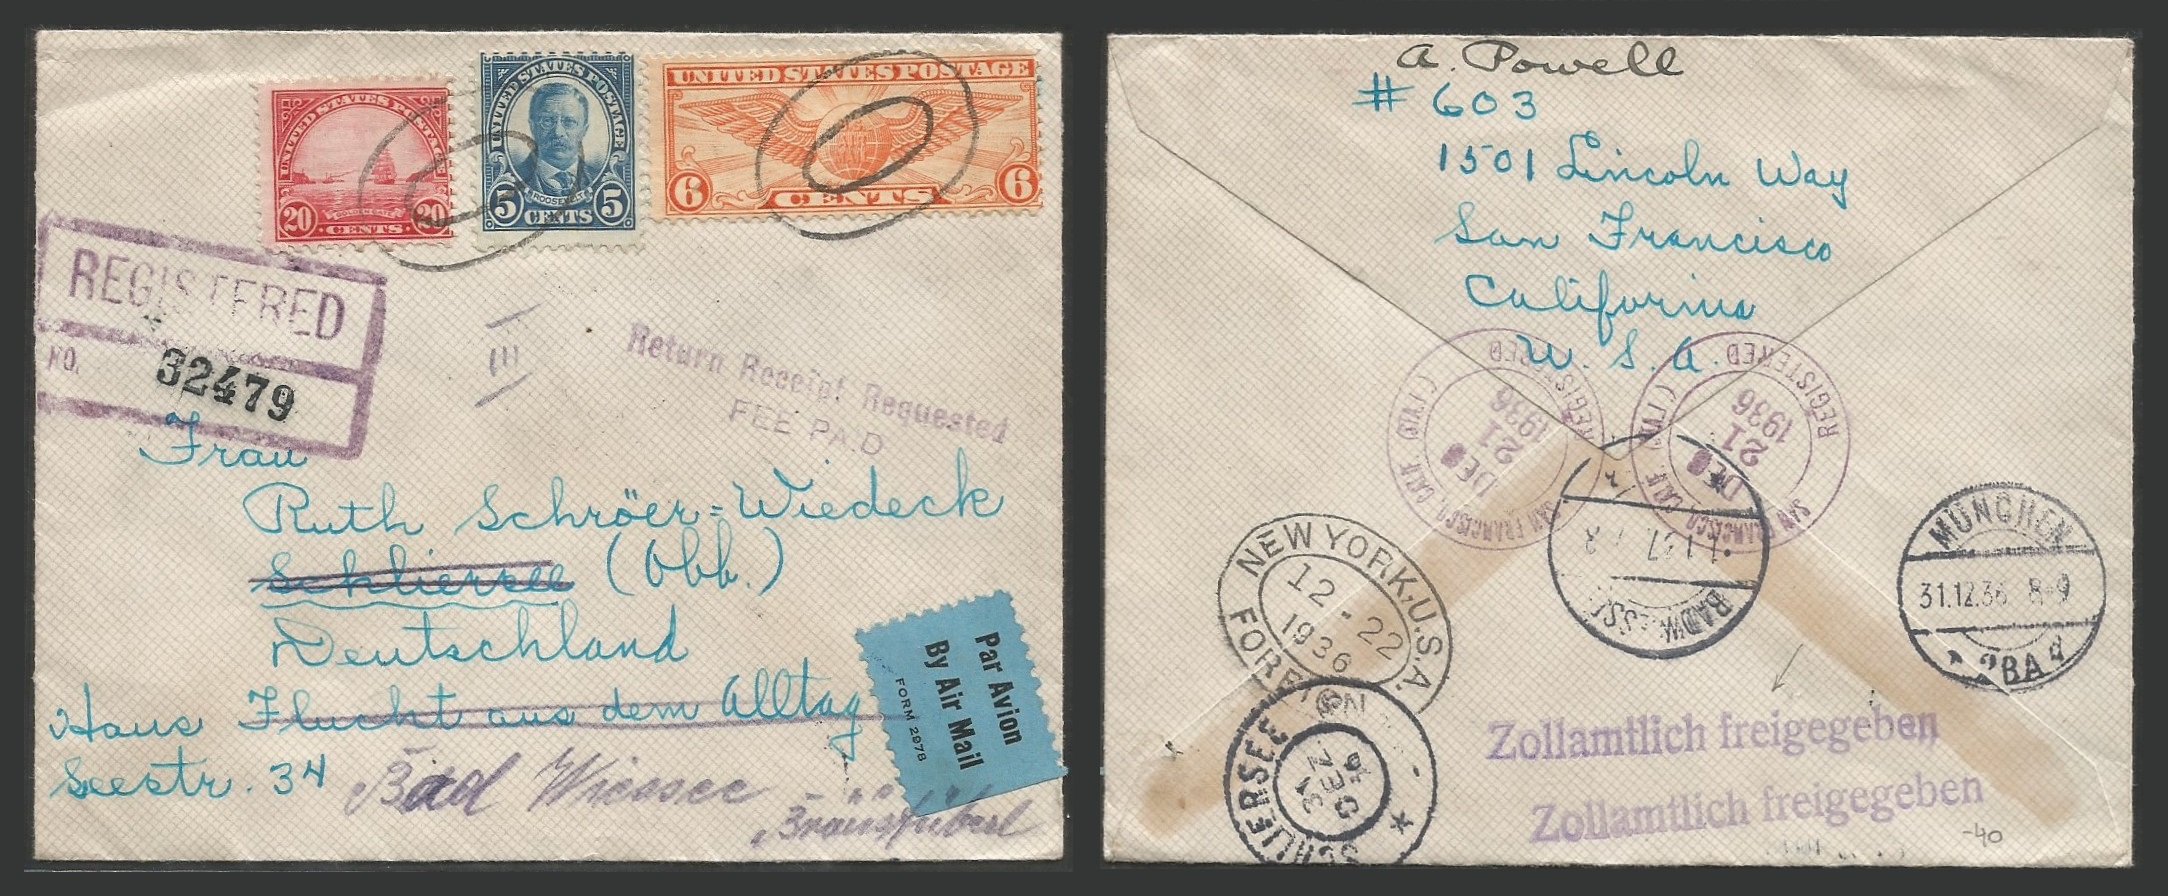 UNITED STATES POSTAGE
20 GOLDEN GATE 20
CENTS
UNITED STATES POSTAGE
ROOSEVELT
5 CENTS 5
UNITED STATES POSTAGE
6 CENTS 6
REGISTERED
NO.
32479
Return Receipt Requested
FEE PAID
Frau
Ruth Schröer=Wiedeck
Schliersee (Obb.)
Deutschland
Haus Flucht aus dem Alltag
Seestr. 34
Bad Wiessee
Par Avion
By Air Mail
FORM 2978
A. Powell
# 603
1501 Lincoln Way
San Francisco
California
U. S. A.
REGISTERED
DEC
21
1936
SAN FRANCISCO, CALIF. (STA.)
REGISTERED
DEC
21
1936
SAN FRANCISCO, CALIF. (STA.)
NEW YORK, U.S.A.
12-22
1936
FOREIGN
BAD WIESSEE
1.1.37
MÜNCHEN
31.12.36 8-9
2BA
SCHLIERSEE
31
DEZ
36
Zollamtlich freigegeben
Zollamtlich freigegeben
-40